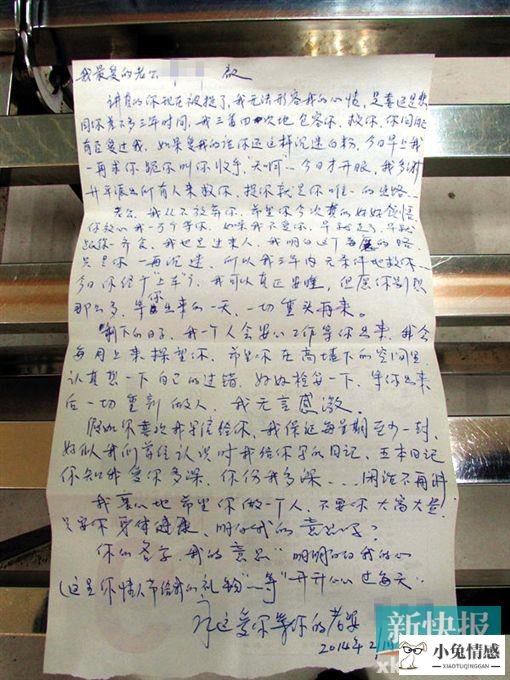 我最爱的老公 启
讲真的你现在被捉了,我无法形容我的心情,是喜还是悲
同你差不多三年时间,我三番四次地包容你、救你、你问问
有否爱过我,如果爱我的话你还这样沉迷白粉,今日早上我
一再求你跪你叫你收手,天啊…今日才开眼,我多谢
所有人来救你,捉你就是你唯一的出路…
老公,我从不放弃你,希望你今次真的好好反悟
你放心我一万个等你,如果我不爱你,早就走了,早就
我也是过来人,我明白这个毒的路
只是你一再沉迷,所以我三年内无条件地救你…
今日你终于"上车"了,我可以真正安睡,但愿你别想
那么多,等你出来的一天,一切重头再来。
剩下的日子,我一个人会安心工作等你出来,我会
每月上来探望你,希望你在高墙下的空间里
认真想一下自己的过错,好好检每一下,等你出来
后一切重新做人,我无言感激。
假如你喜欢我写信给你,我保证每星期至少一封,
好似我们前往认识时我给你写的日记,五本日记
你知我爱你多深,你伤我多深……闲话不再讲
我衷心地希望你做一个人,不要你大富大贵,
只要你身体健康,明白我的意思吗?
你的名字,我的意思"明明白白我的心
(这是你情人节给我的礼物"…等"开开心心过每天…
永远爱你等你的老婆
2014年2/14
新快报
xk
小兔情感
XIAOTUQINGGAN